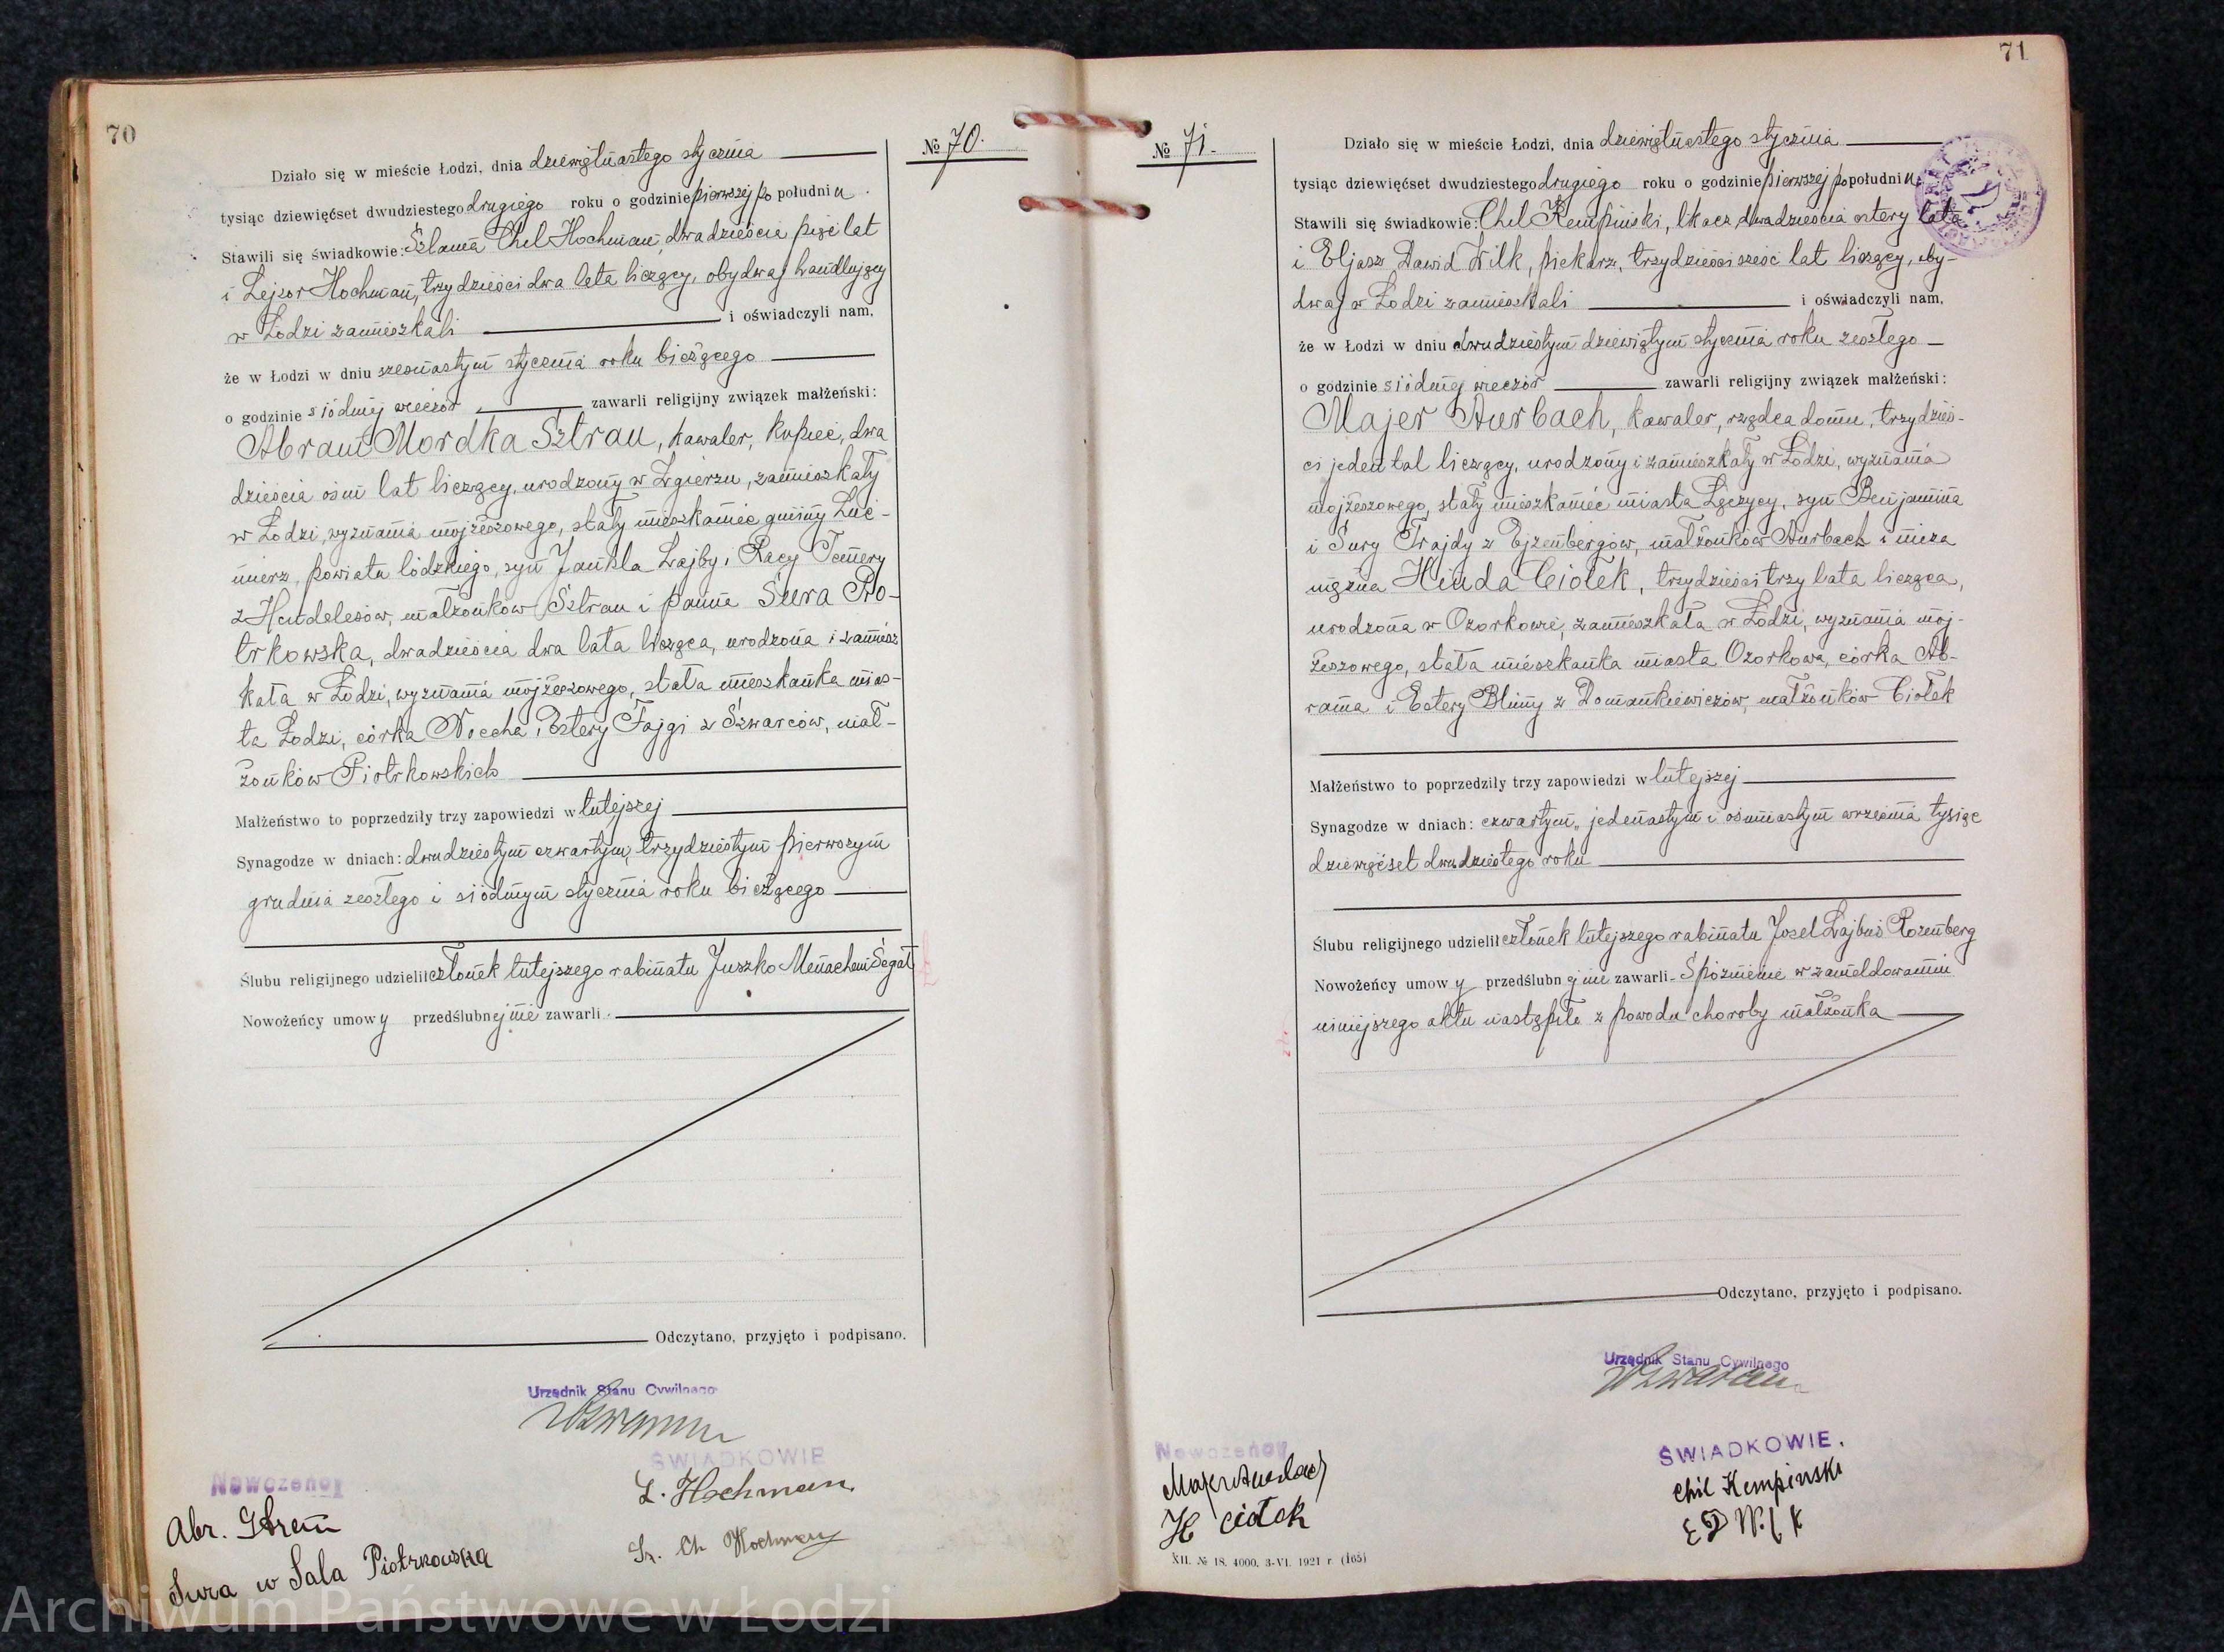 70
Działo się w mieście Łodzi, dnia dziewiętnastego stycznia
tysiąc dziewięćset dwudziestego drugiego roku o godzinie pierwszej po południu.
Stawili się świadkowie: Szlama Chil Hochman, dwadzieścia pięć lat
i Lejzor Hochman, trzydzieści dwa lata liczący, obydwaj handlujący
w Łodzi zamieszkali i oświadczyli nam,
że w Łodzi w dniu szesnastym stycznia roku bieżącego
o godzinie siódmej wieczór zawarli religijny związek małżeński:
Abram Mordka Sztrau, kawaler, kupiec, dwa
dzieścia ośm lat liczący, urodzony w Zgierzu, zamieszkały
w Łodzi, wyznania mojżeszowego, stały mieszkaniec gminy Luć-
mierz, powiatu łódzkiego, syn Jankla Lajby i Racy Temery
z Hendelesów, małżonków Sztrau i panna Sura Pio-
trkowska, dwadzieścia dwa lata licząca, urodzona i zamiesz
kała w Łodzi, wyznania mojżeszowego, stała mieszkanka mias-
ta Łodzi, córka Noecha i Estery Fajgi z Szwarców, mał-
żonków Piotrkowskich
Małżeństwo to poprzedziły trzy zapowiedzi w tutejszej
Synagodze w dniach: dwudziestym czwartym, trzydziestym pierwszym
grudnia zeszłego i siódmym stycznia roku bieżącego
Ślubu religijnego udzielił członek tutejszego rabinatu Juszko Menachem Segał
Nowożeńcy umowy przedślubnej nie zawarli.
Odczytano, przyjęto i podpisano.
Urzędnik Stanu Cywilnego
ŚWIADKOWIE
Nowożeńcy
L. Hochman.
Abr. Sztrau
Sz. Ch Hochman
Sura w Sala Piotrkowska
№ 70.
71
№ 71.
Działo się w mieście Łodzi, dnia dziewiętnastego stycznia
tysiąc dziewięćset dwudziestego drugiego roku o godzinie pierwszej po południu.
Stawili się świadkowie: Chil Kempiński, tkacz, dwadzieścia cztery lata
i Eljasz Dawid Wilk, piekarz, trzydzieści sześć lat liczący, oby-
dwaj w Łodzi zamieszkali i oświadczyli nam,
że w Łodzi w dniu dwudziestym dziewiątym stycznia roku zeszłego
o godzinie siódmej wieczór zawarli religijny związek małżeński:
Majer Aurbach, kawaler, rządca domu, trzydzieś-
ci jeden lat liczący, urodzony i zamieszkały w Łodzi, wyznania
mojżeszowego, stały mieszkaniec miasta Łęczycy, syn Benjamina
i Sury Frajdy z Ejzenbergów, małżonków Aurbach i nieza
mężna Hinda Ciołek, trzydzieści trzy lata licząca,
urodzona w Ozorkowie, zamieszkała w Łodzi, wyznania moj-
żeszowego, stała mieszkanka miasta Ozorkowa, córka Ab-
rama i Estery Blimy z Domankiewiczów, małżonków Ciołek
Małżeństwo to poprzedziły trzy zapowiedzi w tutejszej
Synagodze w dniach: czwartym, jedenastym i osimnastym września tysiąc
dziewięćset dwudziestego roku
Ślubu religijnego udzielił członek tutejszego rabinatu Josel Lajbuś Rozenberg
Nowożeńcy umowy przedślubnej nie zawarli. Spóźnienie w zameldowaniu
niniejszego aktu nastąpiło z powodu choroby małżonka
Odczytano, przyjęto i podpisano.
Urzędnik Stanu Cywilnego
Nowożeńcy
ŚWIADKOWIE.
Majer Aurbach
Chil Kempinski
H Ciołek
E D Wilk
XII. № 18. 4000. 3-VI. 1921 r. (165)
Archiwum Państwowe w Łodzi